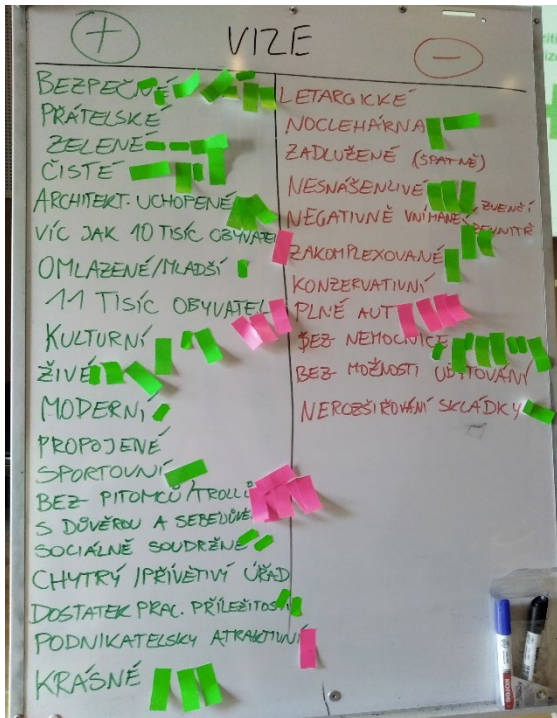 + VIZE -
BEZPEČNÉ
PŘÁTELSKÉ
ZELENÉ
ČISTÉ
ARCHITEKT. UCHOPENÉ
VÍC JAK 10 TISÍC OBYVATEL
OMLAZENÉ/MLADŠÍ
11 TISÍC OBYVATEL
KULTURNÍ
ŽIVÉ
MODERNÍ
PROPOJENÉ
SPORTOVNÍ
BEZ PITOMCŮ/TROLLŮ
S DŮVĚROU A SEBEDŮVĚ
SOCIÁLNĚ SOUDRŽNÉ
CHYTRÝ/PŘÍVĚTIVÝ ÚŘAD
DOSTATEK PRAC. PŘÍLEŽITOSTÍ
PODNIKATELSKY ATRAKTIVNÍ
KRÁSNÉ
LETARGICKÉ
NOCLEHÁRNA
ZADLUŽENÉ (ŠPATNĚ)
NESNÁŠENLIVÉ
NEGATIVNĚ VNÍMANÉ ZVENČÍ
ZEVNITŘ
ZAKOMPLEXOVANÉ
KONZERVATIVNÍ
PLNÉ AUT
BEZ NEMOCNICE
BEZ MOŽNOSTI UBYTOVÁNÍ
NEROZŠIŘOVÁNÍ SKLÁDKY